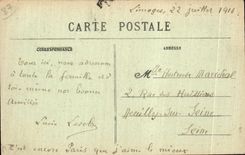 Limoges, 22 juillet 1916
CARTE POSTALE
CORRESPONDANCE
ADRESSE
Tous ici, nous adressons
à toute la famille et
toi-même nos bonnes
Amitiés
Mlle Maréchal
2 Rue des Huissiers
Neuilly-sur-Seine
Seine
C'est encore Paris que j'aime le mieux